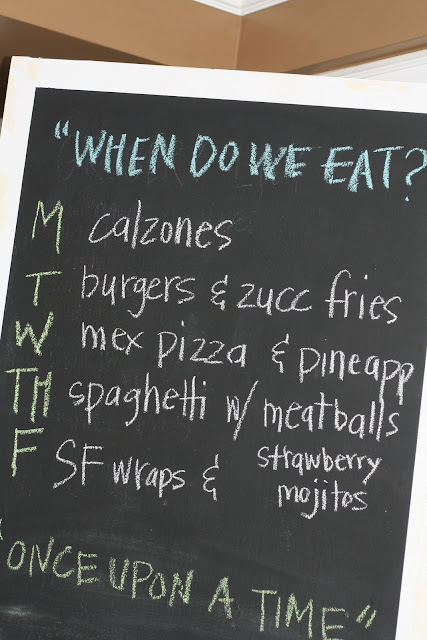 "WHEN DO WE EAT?
M calzones
T burgers & zucc fries
W mex pizza & pineapp
TH spaghetti w/ meatballs
F SF wraps & strawberry mojitos
"ONCE UPON A TIME"